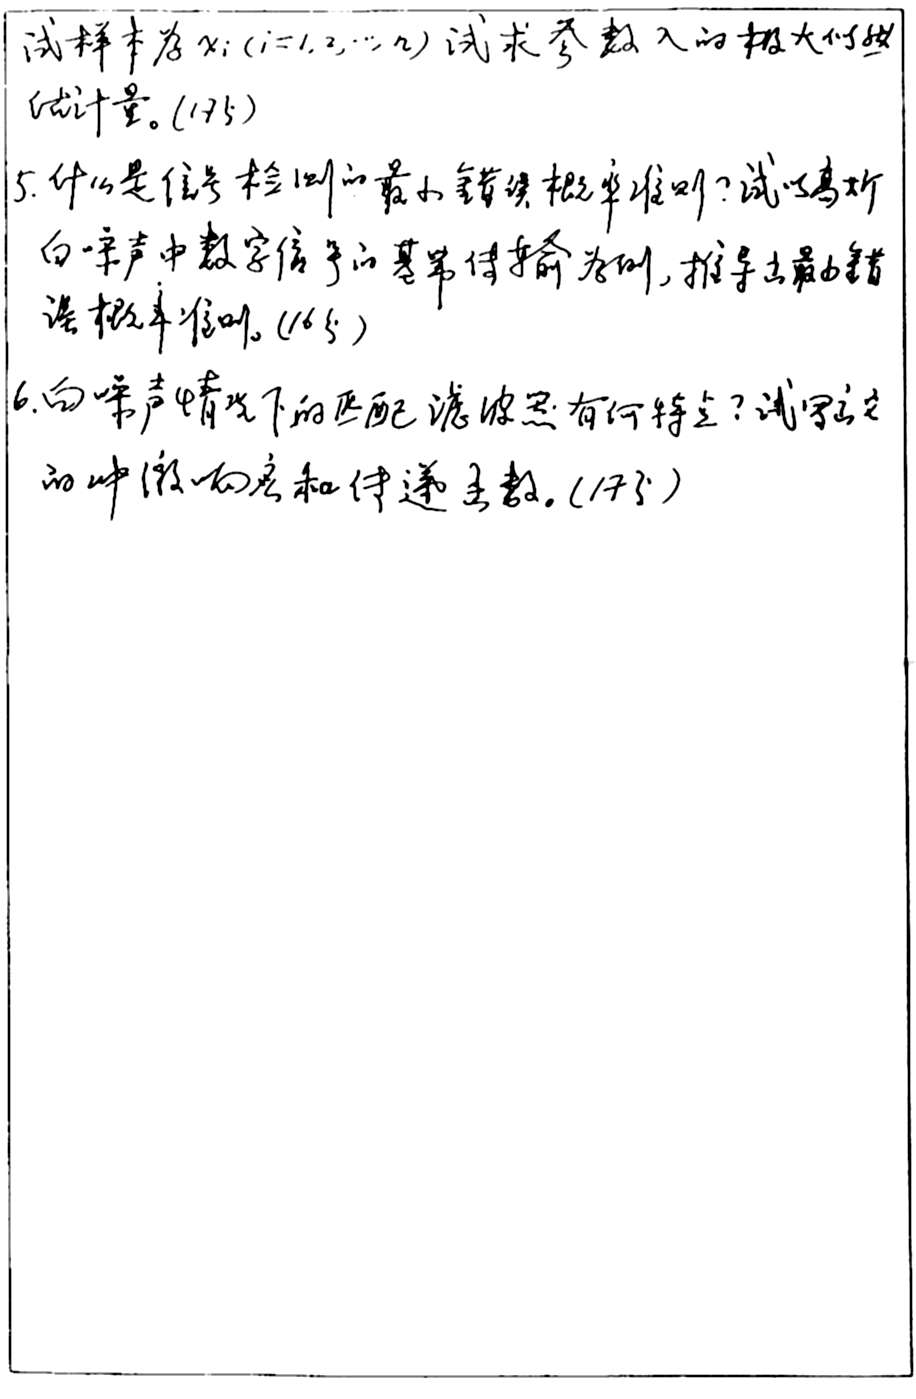 试样本为 xi (i=1,2,…,n) 试求参数入的极大似然
估计量。(17分)
5. 什么是信号检测的最小错误概率准则？试以高斯
白噪声中数字信号的基带传输为例，推导出最小错
误概率准则。(16分)
6. 白噪声情况下的匹配滤波器有何特点？试写出它
的冲激响应和传递函数。(17分)